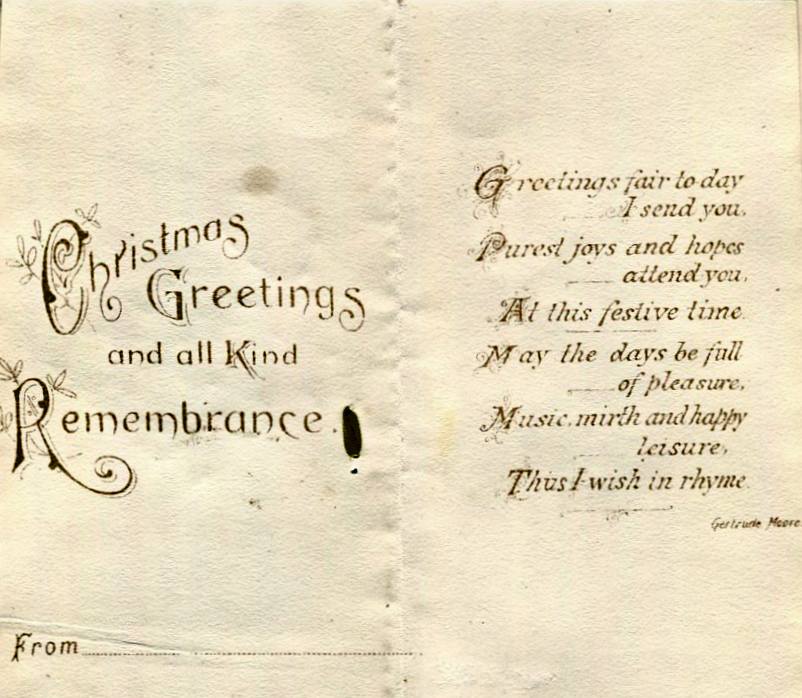 Christmas
Greetings
and all Kind
Remembrance.
From
Greetings fair to day
I send you,
Purest joys and hopes
attend you,
At this festive time.
May the days be full
of pleasure,
Music, mirth and happy
leisure,
Thus I wish in rhyme.
Gertrude Moore.